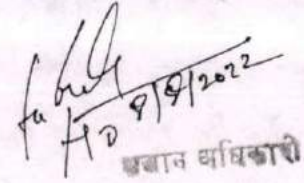 HD 9/9/2022
प्रधान अधिकारी